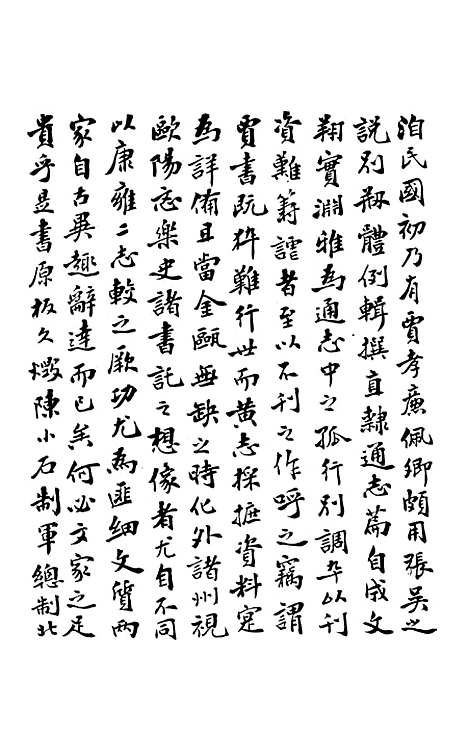 洎民國初乃有賈孝廉佩卿頗用張吳之
說別剏體例輯撰直隸通志篇自成文
翔實淵雅為通志中之孤行別調卒以刊
資難籌讀者至以不刊之作呼之竊謂
賈書既梓難行世而黃志採摭資料寔
為詳備且當金甌無缺之時化外諸州視
歐陽忞樂史諸書託之想像者尤自不同
以康雍二志較之厥功尤為匪細文質兩
家自古異趣辭達而已矣何必文家之足
貴乎是書原板久燬陳小石制軍總制北